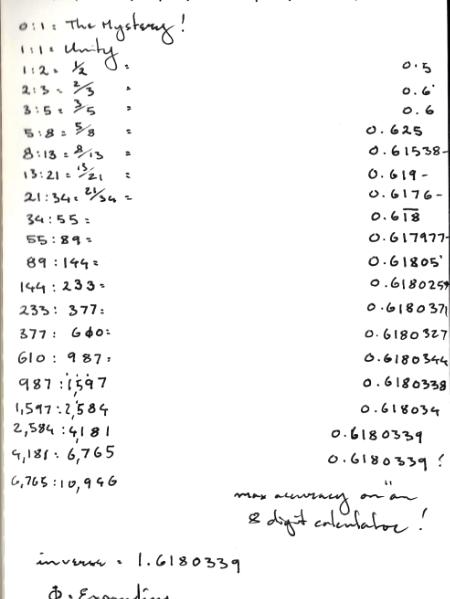 0:1 = The Mystery!
1:1 = Unity
1:2 = 1/2 = 0.5
2:3 = 2/3 = 0.6˙
3:5 = 3/5 = 0.6
5:8 = 5/8 0.625
8:13 = 8/13 = 0.61538-
13:21 = 13/21 0.619-
21:34 = 21/34 = 0.6176-
34:55 = 0.618
55:89 = 0.617977-
89:144 = 0.61805˙
144:233 = 0.618025
233:377 = 0.618037
377:610 = 0.6180327
610:987 = 0.6180344
987:1,597 0.6180338
1,597:2,584 0.618034
2,584:4,181 0.6180339
4,181:6,765 0.6180339!
6,765:10,946 "
max accuracy on an
8 digit calculator!
inverse = 1.6180339